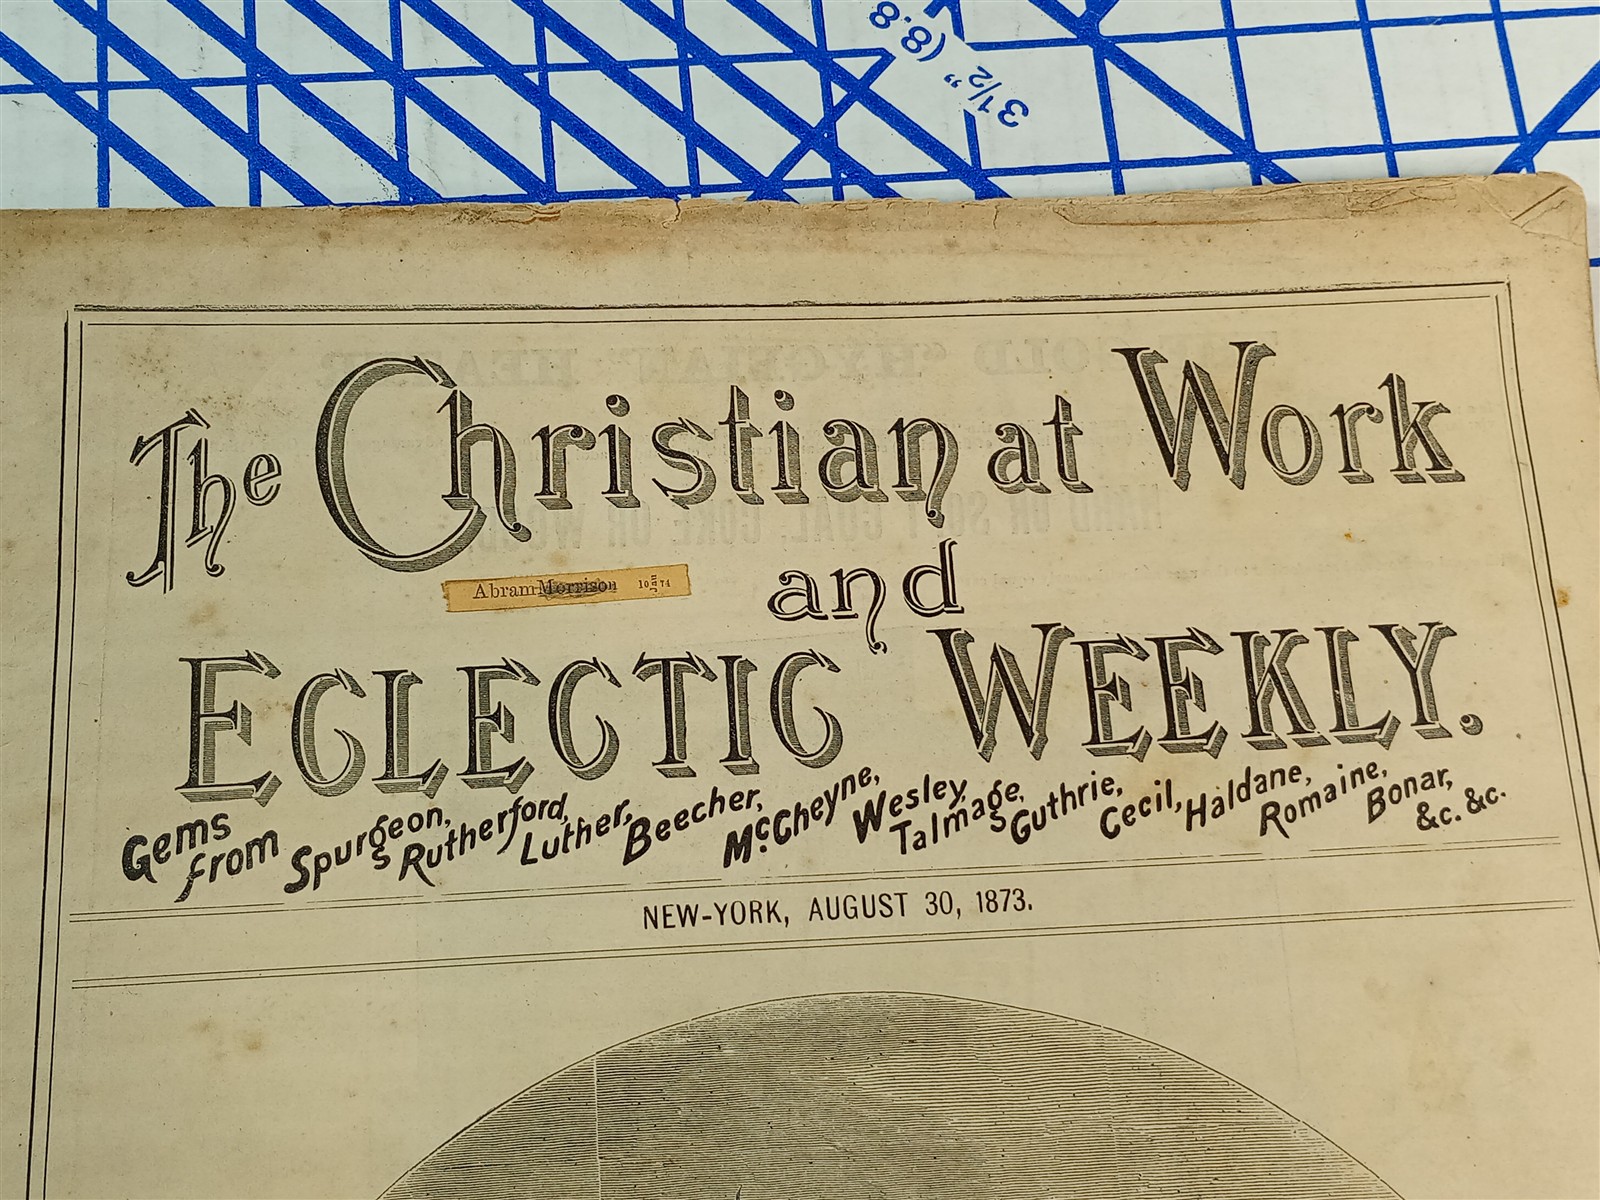 3½" (8.8
The Christian at Work
Abram Morrison 10 Jan 74
and
ECLECTIC WEEKLY.
Gems from Spurgeon, Rutherford, Luther, Beecher, McCheyne, Wesley, Talmage, Guthrie, Cecil, Haldane, Romaine, Bonar, &c. &c.
NEW-YORK, AUGUST 30, 1873.